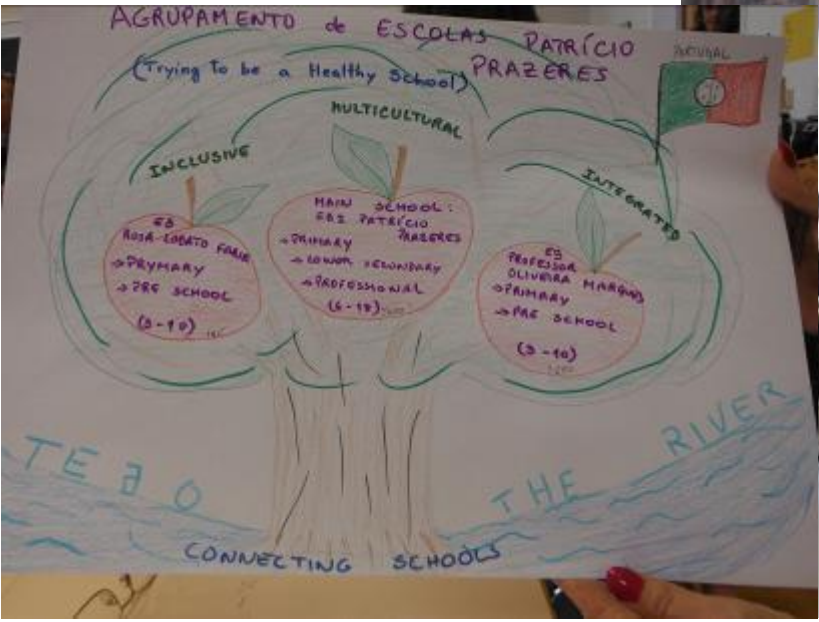 AGRUPAMENTO de ESCOLAS PATRÍCIO
PRAZERES
(Trying to be a Healthy School)
PORTUGAL
INCLUSIVE
MULTICULTURAL
INTEGRATED
EB
ROSA LOBATO FARIA
→ PRYMARY
→ PRE SCHOOL
(3-10)
MAIN SCHOOL:
EB1 PATRÍCIO
PRAZERES
→ PRIMARY
→ LOWER SECUNDARY
→ PROFESSIONAL
(6-18)
EB
PROFESSOR
OLIVEIRA MARQUES
→ PRIMARY
→ PRE SCHOOL
(3-10)
TEJO THE RIVER
CONNECTING SCHOOLS